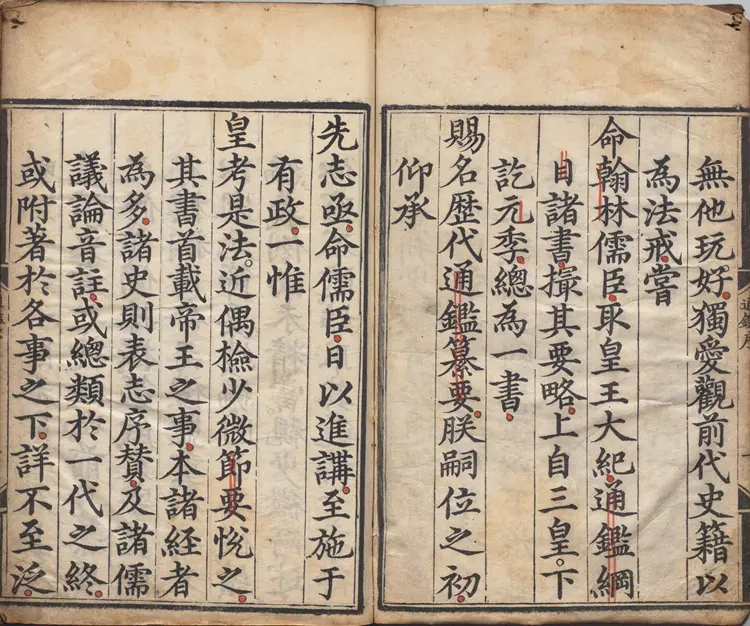 無他玩好獨愛觀前代史籍以
為法戒嘗
命翰林儒臣取皇王大紀通鑑綱
目諸書撮其要略上自三皇下
訖元季總為一書
賜名歴代通鑑纂要朕嗣位之初
仰承
先志亟命儒臣日以進講至施于
有政一惟
皇考是法近偶檢少微節要悅之
其書首載帝王之事本諸經者
為多諸史則表志序贊及諸儒
議論音註或總類於一代之終
或附著於各事之下詳不至泛